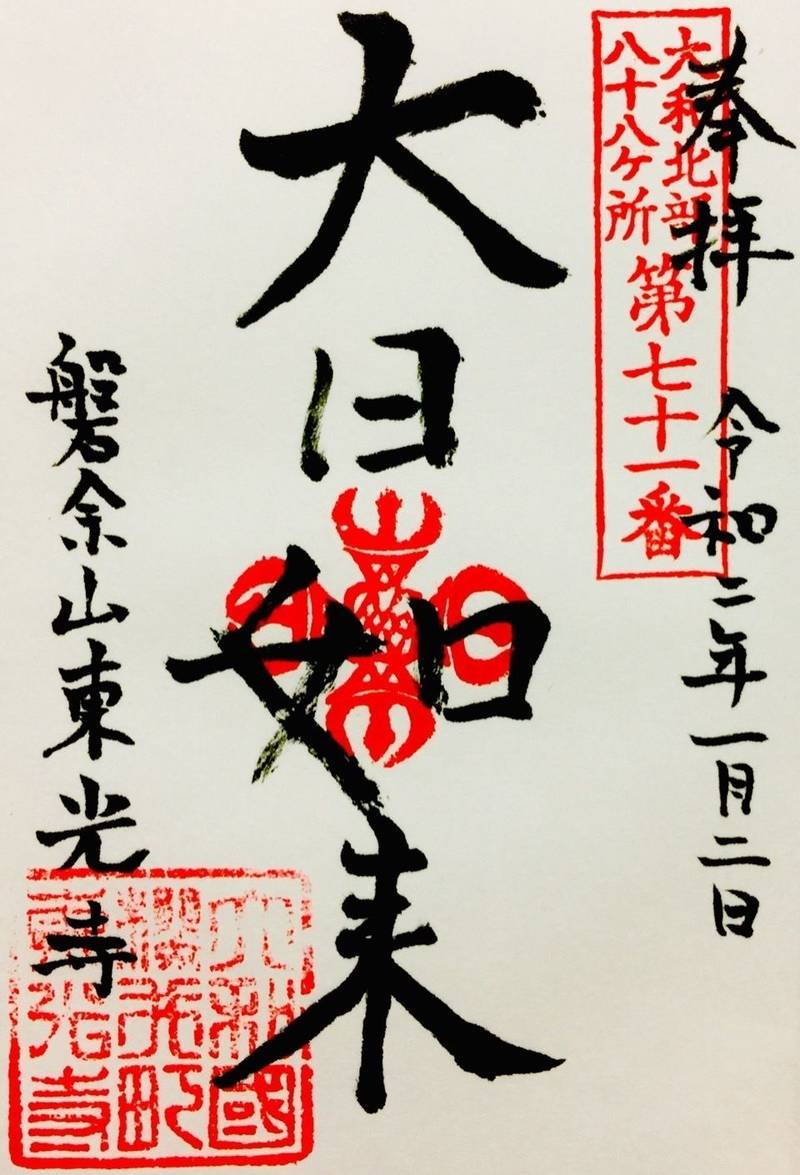 奉拝 令和二年一月二日
大和北部
八十八ケ所
第七十一番
大日如来
磐余山東光寺
大和國
東光寺